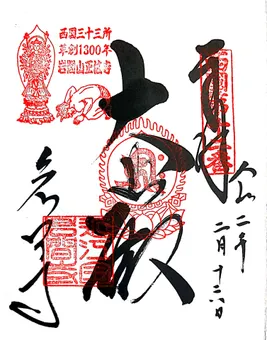 西国三十三所
草創1300年
岩間山正法寺
奉拝
令和二年二月
大悲殿
岩間寺